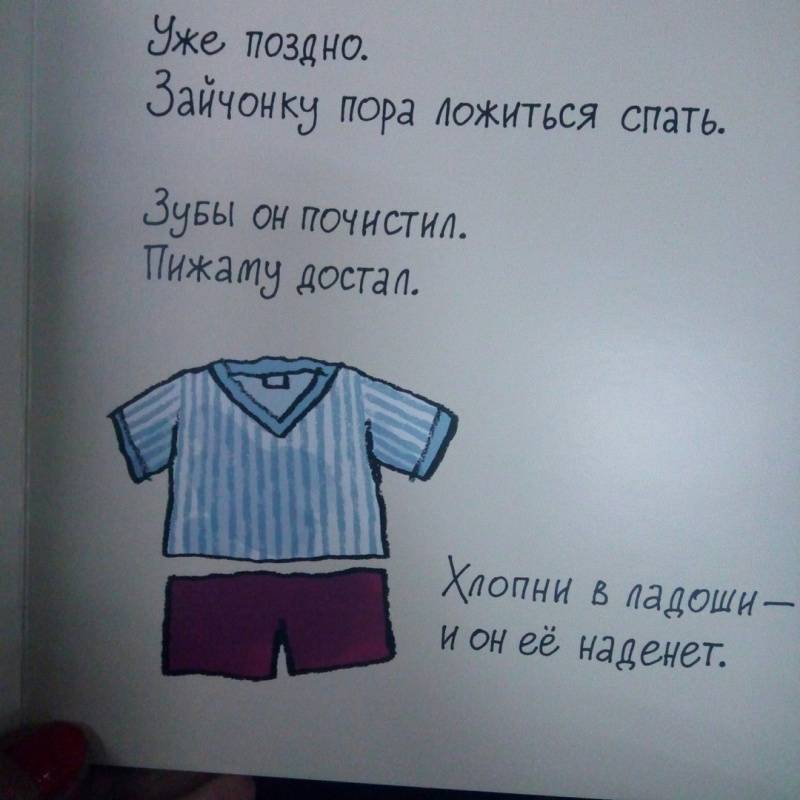 Уже поздно.
Зайчонку пора ложиться спать.
Зубы он почистил.
Пижаму достал.
Хлопни в ладоши—
и он её наденет.